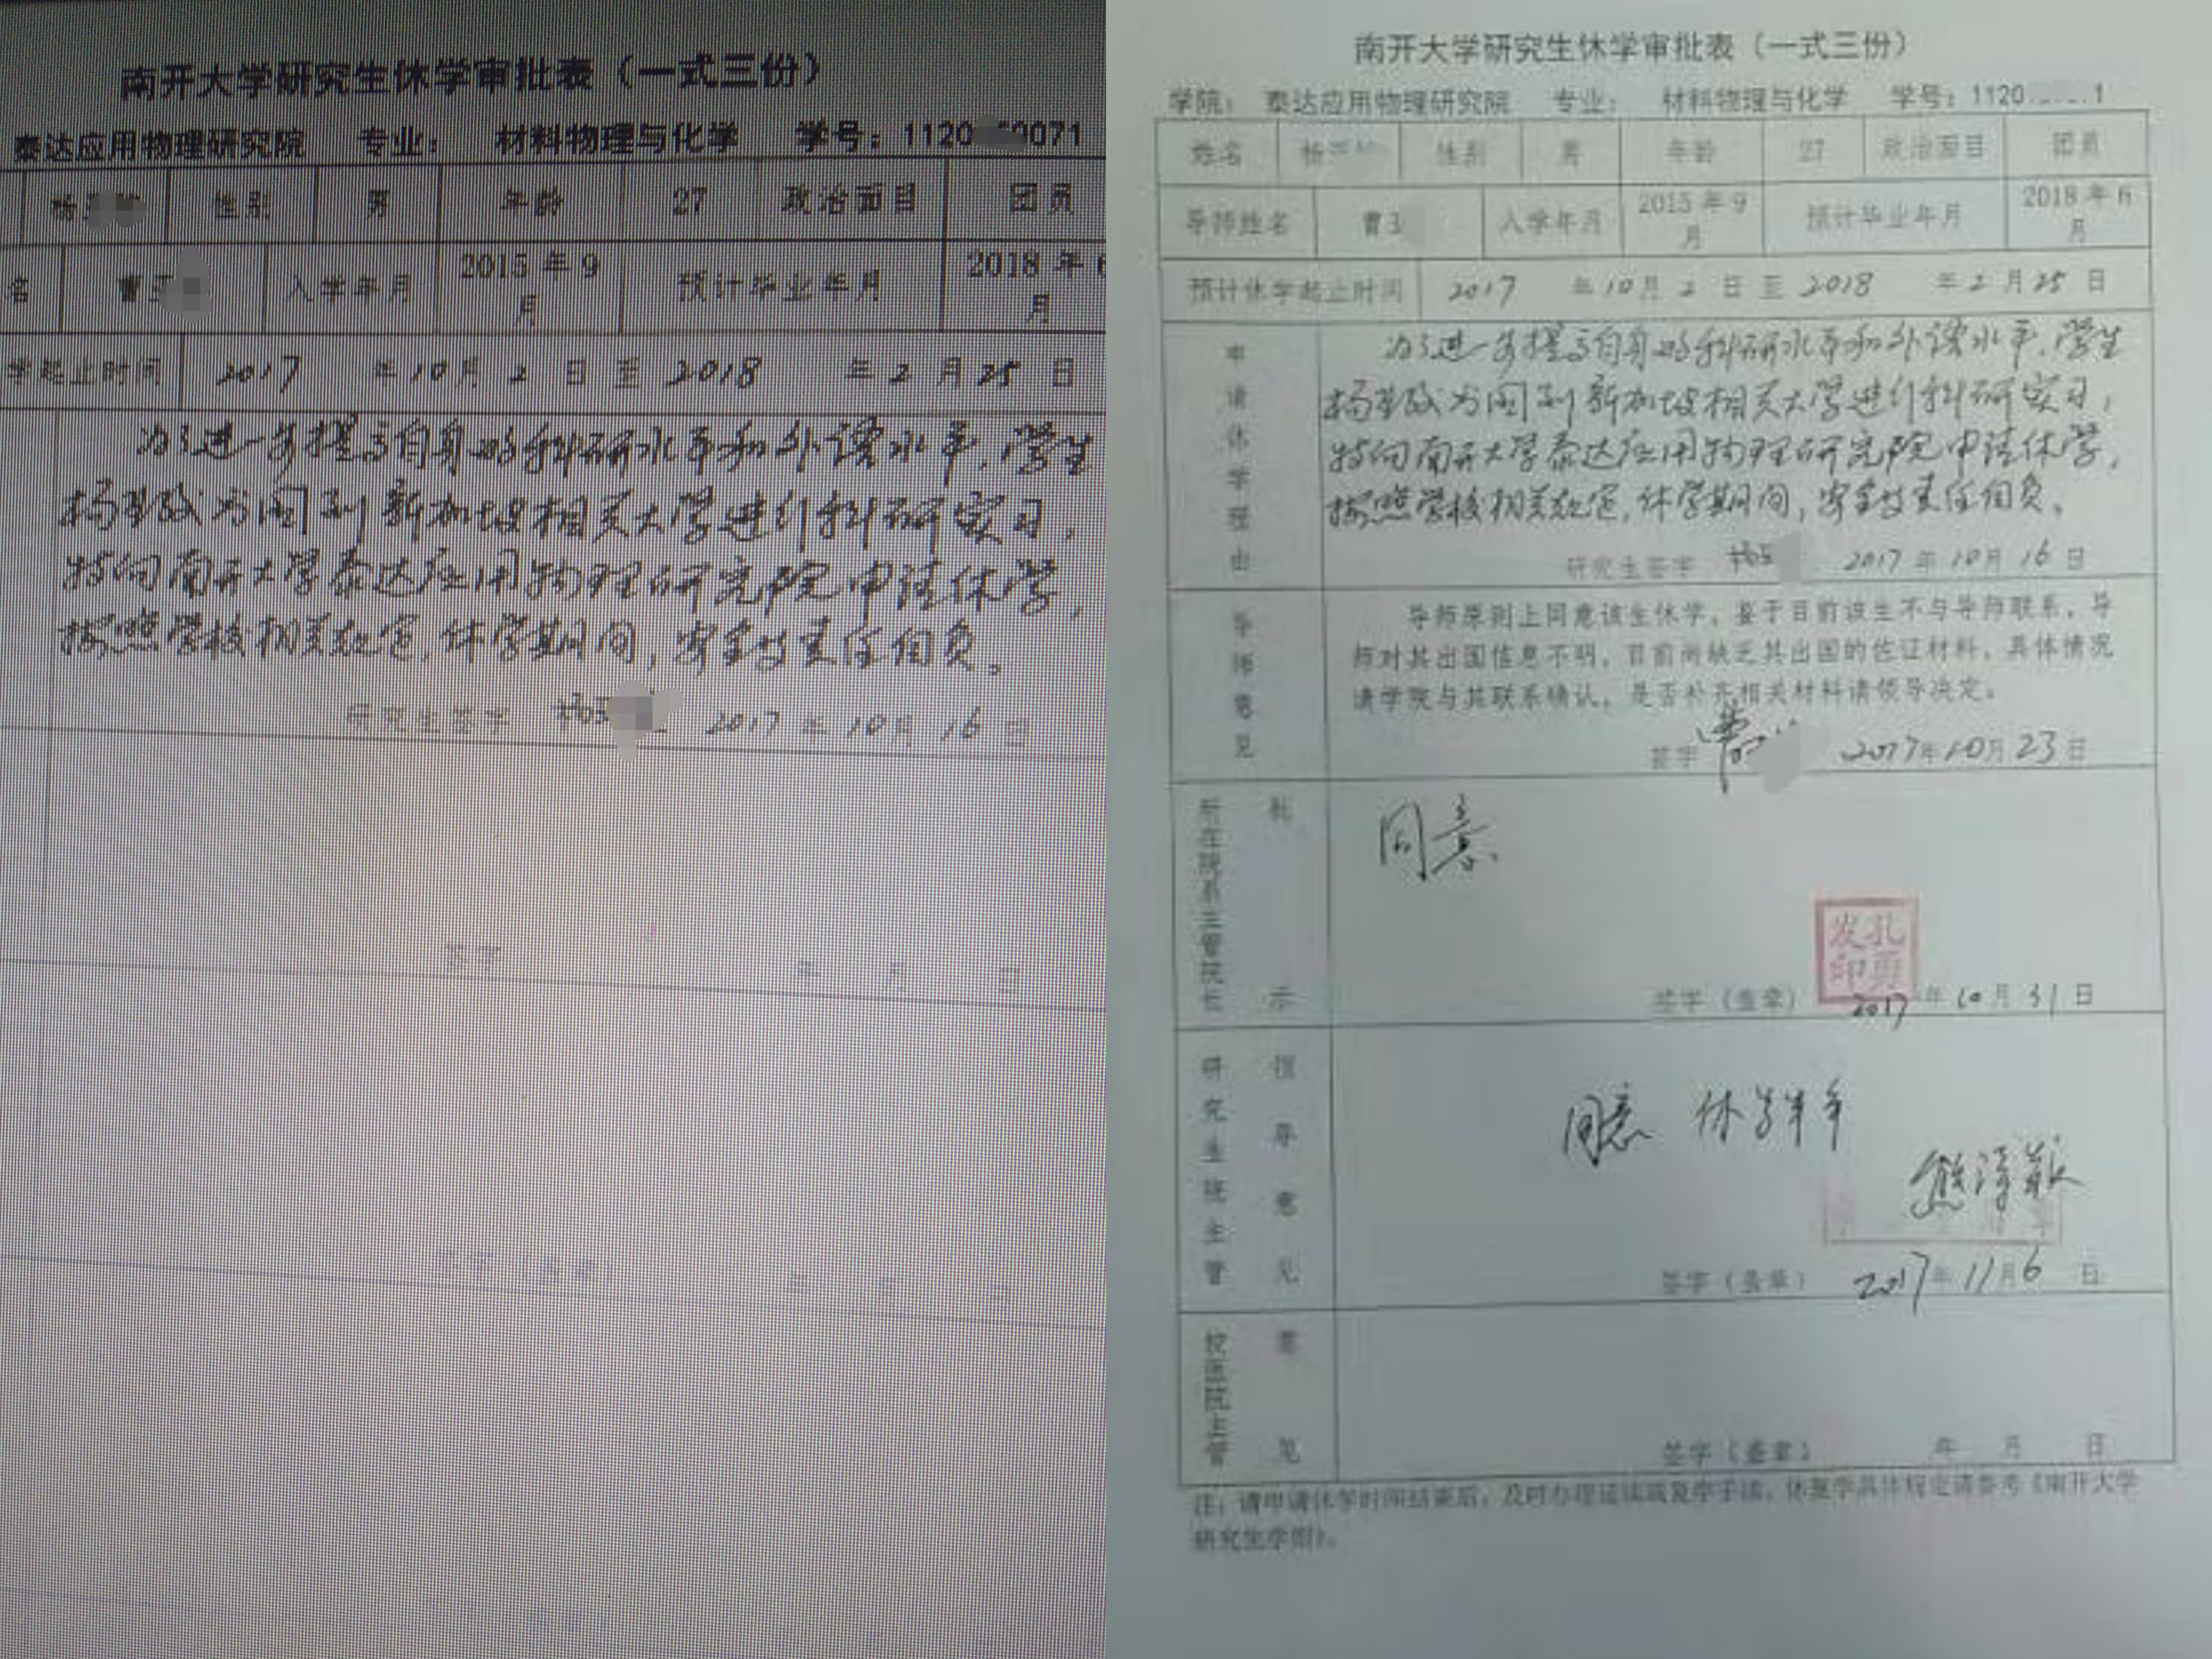 南开大学研究生休学审批表（一式三份）
泰达应用物理研究院 专业： 材料物理与化学 学号：1120 0071
杨 性别 男 年龄 27 政治面目 团员
名 曹 入学年月 2015 年 9 月 预计毕业年月 2018 年 6 月
学起止时间 2017 年 10 月 2 日 至 2018 年 2 月 25 日
为了进一步提高自身的科研水平和外语水平，学生
杨 为 到新加坡相关大学进行科研实习，
特向南开大学泰达应用物理研究院申请休学，
按照学校相关规定，休学期间，安全等责任自负。
研究生签字 2017 年 10 月 16 日
签字 年 月 日
签字（盖章） 年 月 日
南开大学研究生休学审批表（一式三份）
学院： 泰达应用物理研究院 专业： 材料物理与化学 学号：1120 1
姓名 杨 性别 男 年龄 27 政治面目 团员
导师姓名 曹 入学年月 2015 年 9 月 预计毕业年月 2018 年 6 月
预计休学起止时间 2017 年 10 月 2 日 至 2018 年 2 月 25 日
申请休学理由
为了进一步提高自身的科研水平和外语水平，学生
杨 为 到新加坡相关大学进行科研实习，
特向南开大学泰达应用物理研究院申请休学，
按照学校相关规定，休学期间，安全等责任自负。
研究生签字 2017 年 10 月 16 日
导师意见
导师原则上同意该生休学，鉴于目前该生不与导师联系，导
师对其出国信息不明，目前尚缺乏其出国的佐证材料，具体情况
请学院与其联系确认，是否补充相关材料请领导决定。
签字 曹 2017年10月23日
所在院系主管院长批示
同意
发孔
印勇
签字（盖章） 2017 年 10 月 31 日
研究生院主管领导意见
同意 休学半年
签字（盖章） 2017 年 11 月 6 日
校医院主管意见
签字（盖章） 年 月 日
注：请申请休学时间结束后，及时办理延续或复学手续，休复学具体规定请参考《南开大学
研究生学则》。